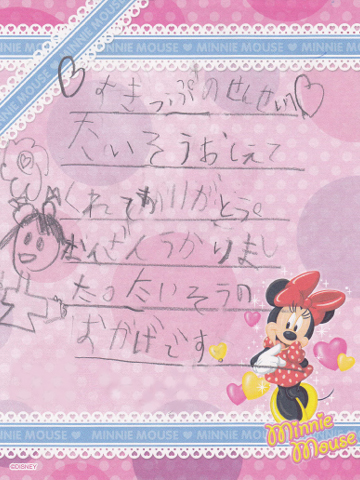 MINNIE MOUSE ♥ MINNIE MOUSE
MINNIE MOUSE
♡すきっぷのせんせい♡
たいそうおしえて
くれてありがとう。
うかりまし
た。たいそうの
おかげです
Minnie
Mouse
MINNIE MOUSE ♥ MINNIE MOUSE ♥ MINNIE
©DISNEY